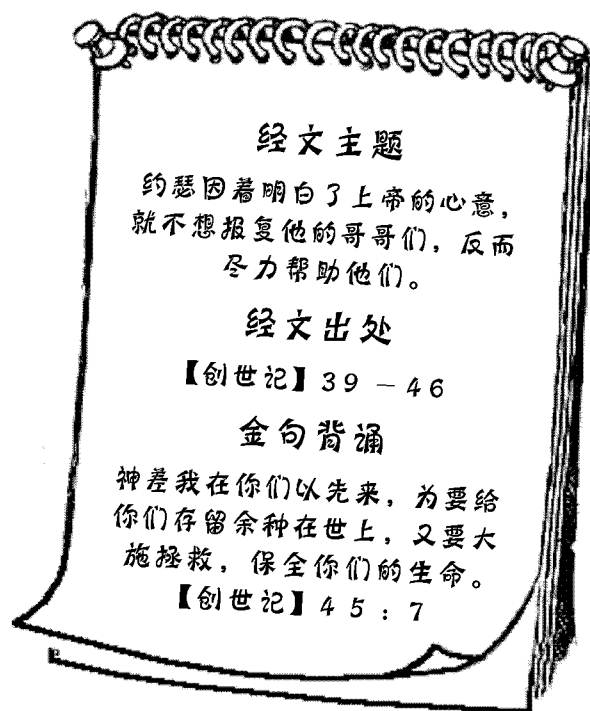 经文主题
约瑟因着明白了上帝的心意，
就不想报复他的哥哥们，反而
尽力帮助他们。
经文出处
【创世记】39－46
金句背诵
神差我在你们以先来，为要给
你们存留余种在世上，又要大
施拯救，保全你们的生命。
【创世记】45：7